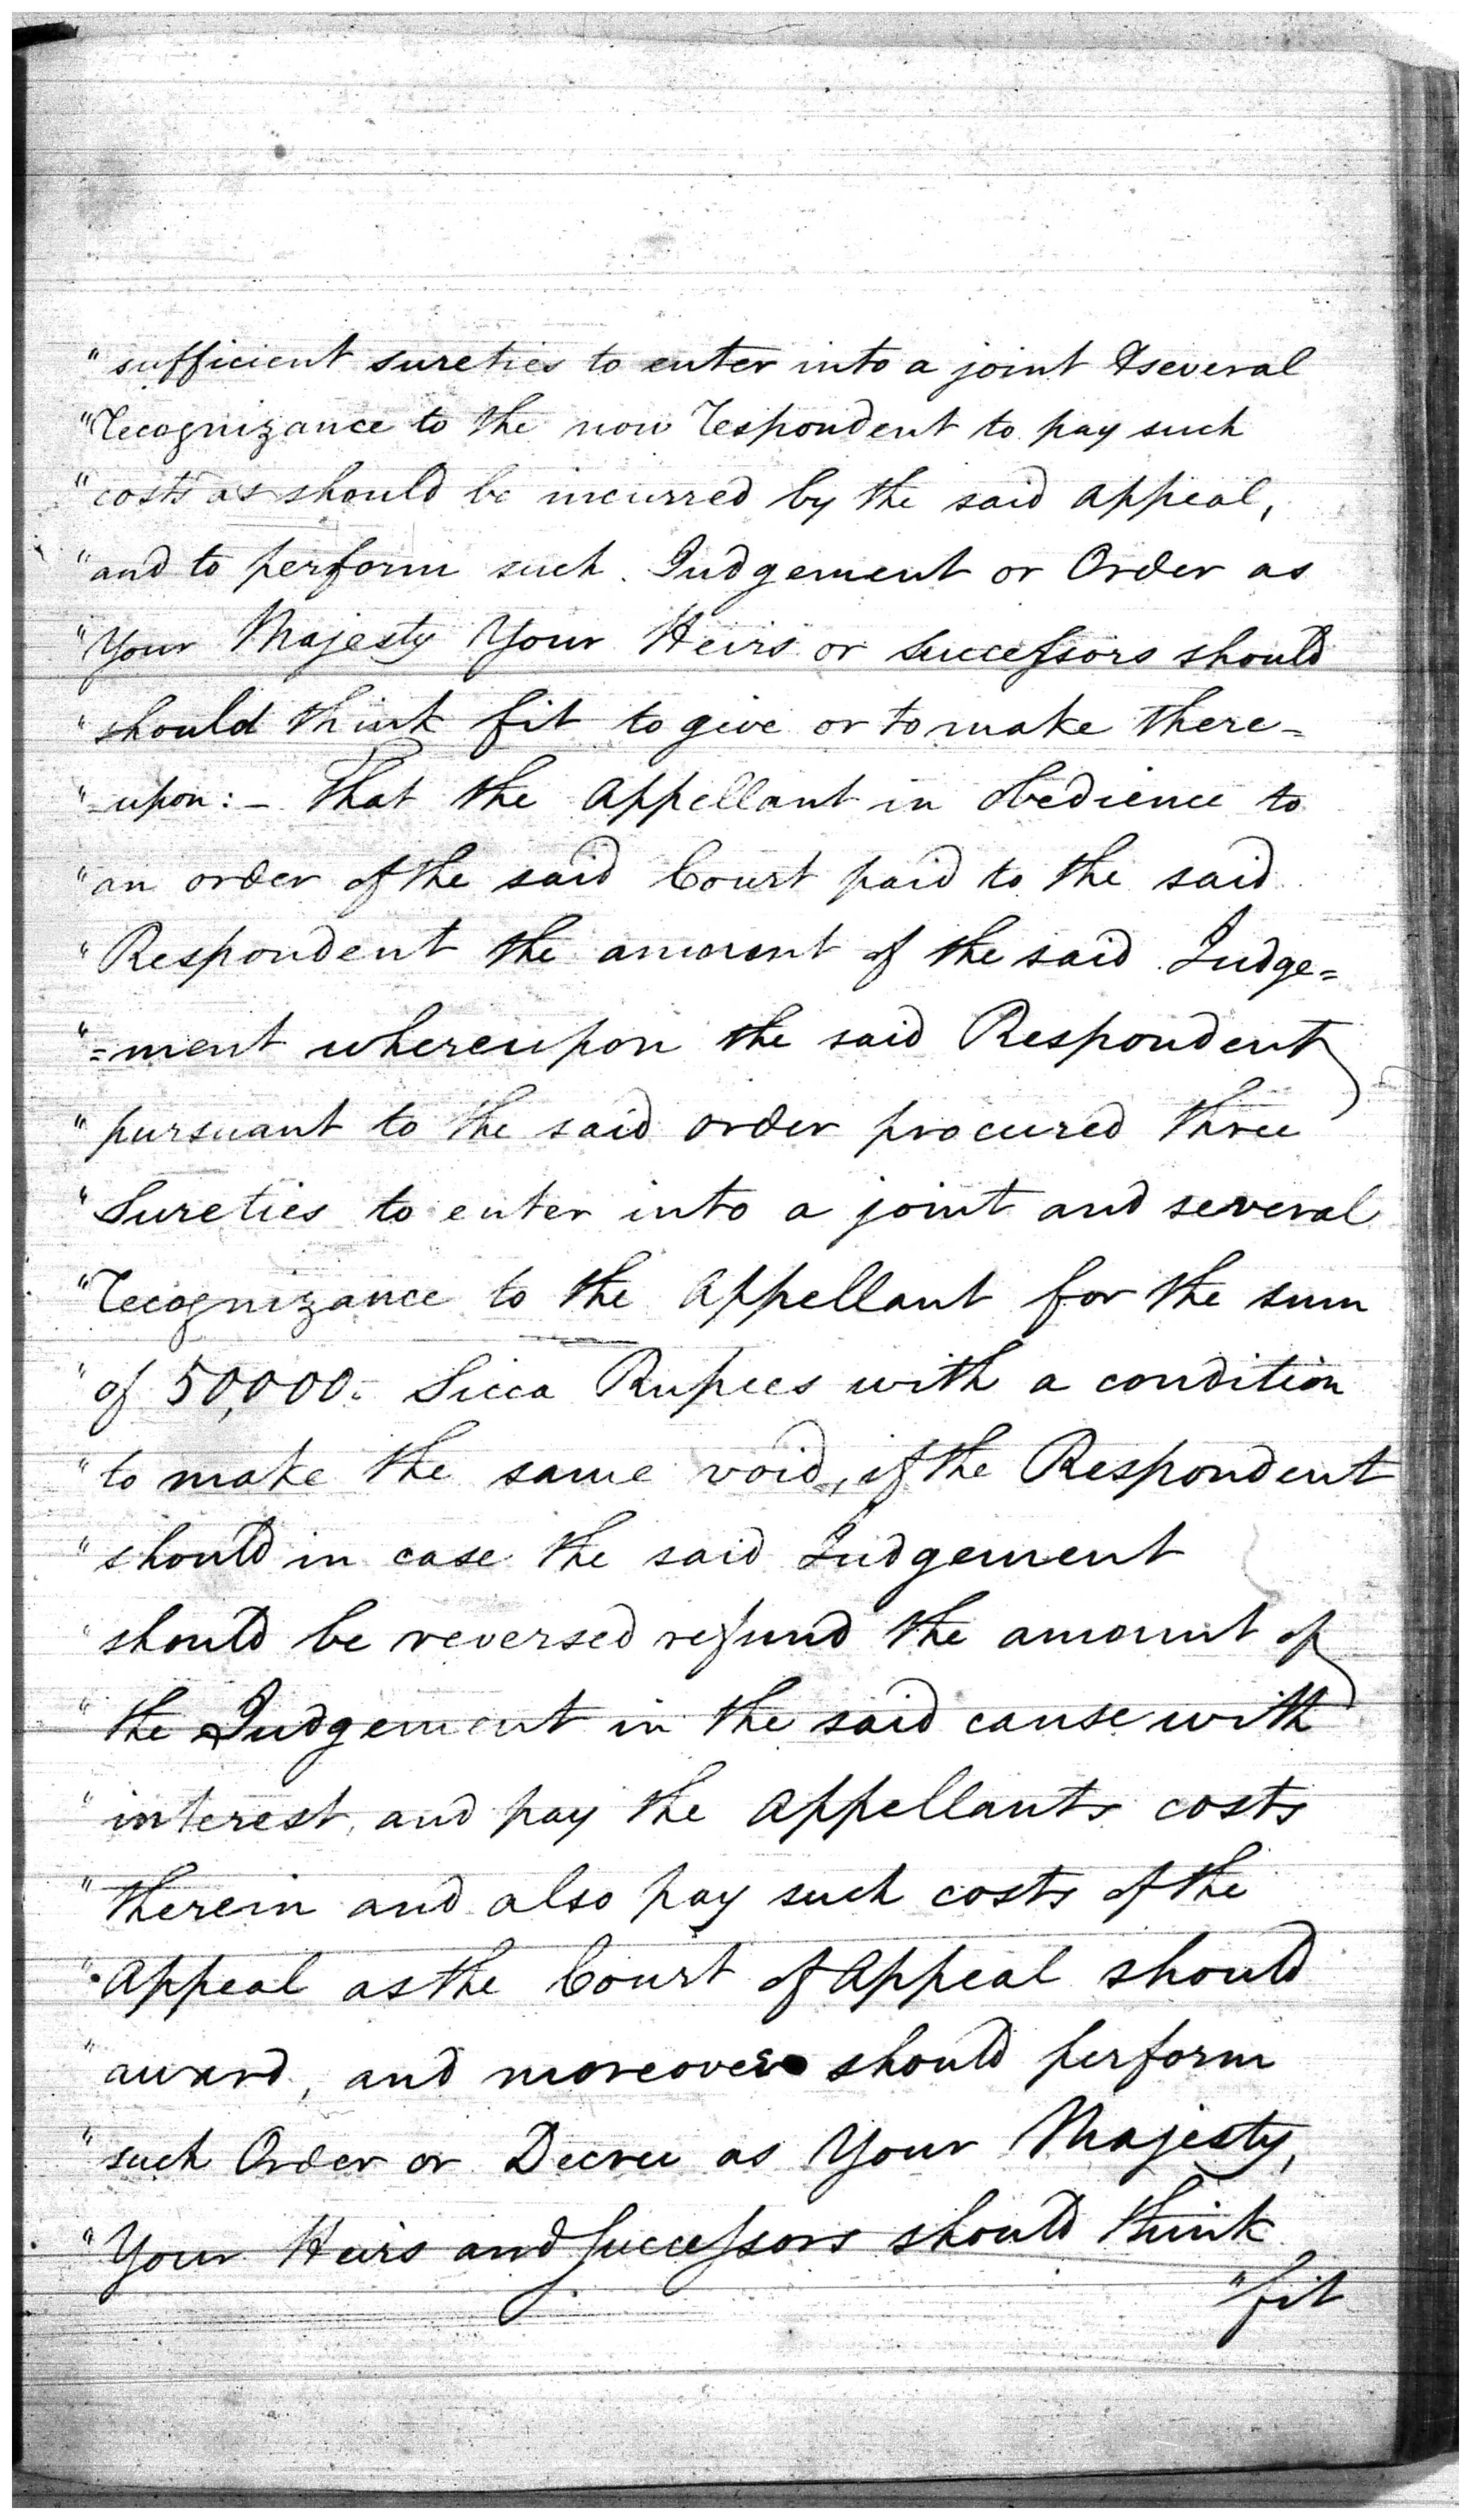 " sufficient sureties to enter into a joint & several
" recognizance to the now respondent to pay such
" costs as should be incurred by the said appeal,
" and to perform such Judgement or Order as
" Your Majesty Your Heirs or successors should
" should think fit to give or to make there=
" =upon:- That the Appellant in obedience to
" an order of the said Court paid to the said
" Respondent the amount of the said Judge=
" =ment whereupon the said Respondent
" pursuant to the said order procured three
" Sureties to enter into a joint and several
" recognizance to the Appellant for the sum
" of 50,000.- Sicca Rupees with a condition
" to make the same void, if the Respondent
" should in case the said Judgement
" should be reversed refund the amount of
" the Judgement in the said cause with
" interest, and pay the Appellants costs
" therein and also pay such costs of the
" Appeal as the Court of Appeal should
" award, and moreover should perform
" such Order or Decree as Your Majesty,
" Your Heirs and successors should think
" fit